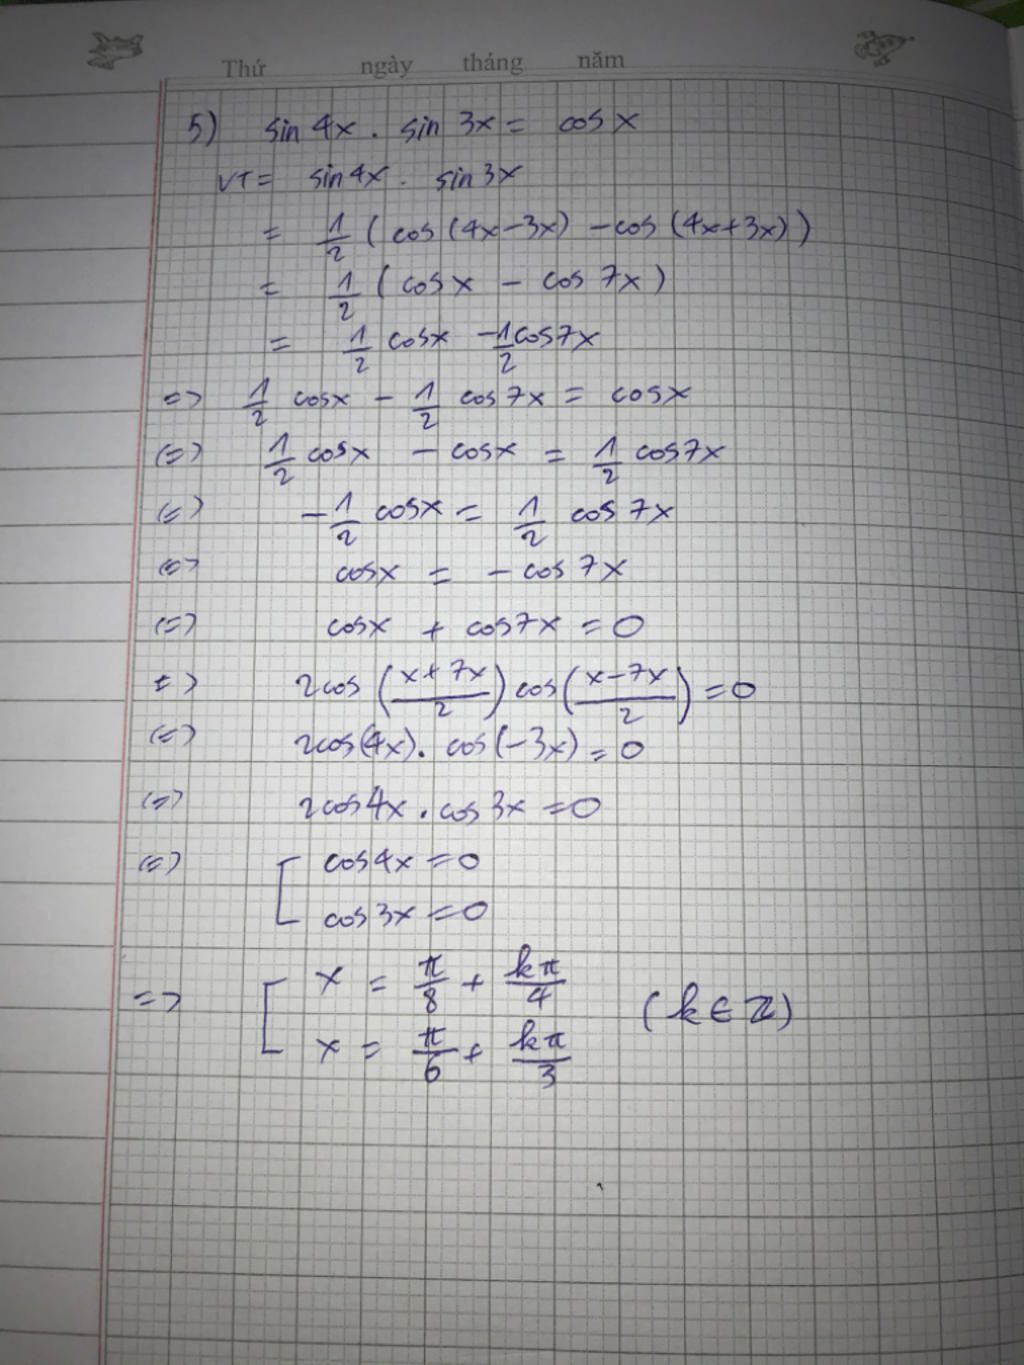 Thứ ngày tháng năm
5) sin 4x . sin 3x = cos x
VT = sin 4x . sin 3x
= 1/2 (cos (4x-3x) - cos (4x+3x))
= 1/2 (cos x - cos 7x)
= 1/2 cosx - 1/2 cos7x
=> 1/2 cosx - 1/2 cos 7x = cosx
(=) 1/2 cosx - cosx = 1/2 cos7x
(=) -1/2 cosx = 1/2 cos 7x
(=) cosx = - cos 7x
(=) cosx + cos7x = 0
(=) 2cos ((x+7x)/2) cos ((x-7x)/2) = 0
(=) 2cos(4x) . cos(-3x) = 0
(=) 2cos4x . cos3x = 0
(=) [ cos4x = 0
cos3x = 0
=> [ x = π/8 + kπ/4 (k ∈ Z)
x = π/6 + kπ/3